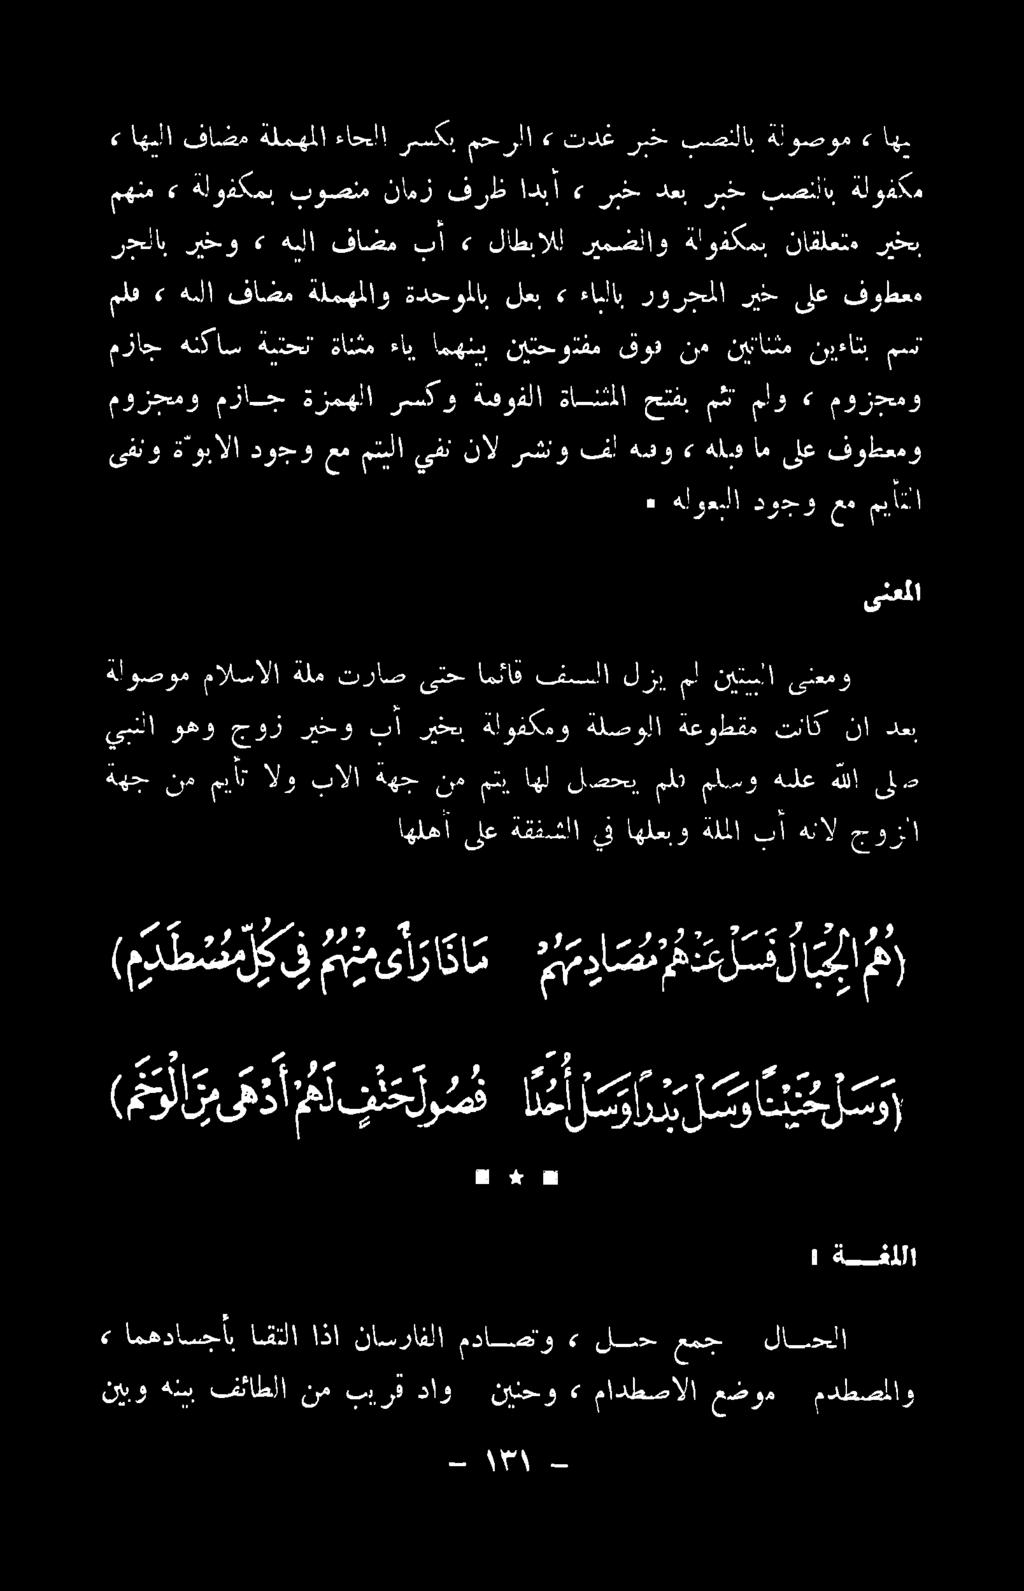 بها ، موصولة بالنصب خبر غدت ، الرحم بكسر الحاء المهملة مضاف اليها ،
مكفولة بالنصب خبر بعد خبر ، أبدا ظرف زمان منصوب بمكفولة ، منهم
بخير متعلقان بمكفولة والضمير للابطال ، أب مضاف اليه ، وخير بالجر
معطوف على خير المجرور بالباء ، بعل بالموحدة والمهملة مضاف اليه ، فلم
تيتم بتاءين مثناتين من فوق مفتوحتين بينهما ياء مثناة تحتية ساكنه جازم
ومجزوم ، ولم تئم بفتح المثنــاة الفوقية وكسر الهمزة جــازم ومجزوم
ومعطوف على ما قبله ، وفيه لف ونشر لان نفي اليتم مع وجود الابوّة ونفى
التأيم مع وجود البعوله ■
المعنى
ومعنى البيتين لم يزل السيف قائما حتى صارت ملة الاسلام موصولة
بعد ان كانت مقطوعة الوصلة ومكفولة بخير أب وخير زوج وهو النبي
صلى الله عليه وسلم فلم يحصل لها يتم من جهة الاب ولا تأيم من جهة
الزوج لانه أب الملة وبعلها في الشفقة على أهلها
(هُمُ الْجِبَالُ فَسَلْ عَنْهُمْ مُصَادِمَهُمْ مَاذَا رَأَى مِنْهُمُ فِي كُلِّ مُصْطَدَمِ)
(وَسَلْ حُنَيْنًا وَسَلْ بَدْرًا وَسَلْ أُحُدًا فُصُولَ حَتْفٍ لَهُمْ أَدْهَى مِنَ الْوَخَمِ)
■ ★ ■
اللغــة :
الجبــال جمع جبــل ، وتصــادم الفارسان اذا التقيا بأجسادهما ،
والمصطدم موضع الاصطدام ، وحنين واد قريب من الطائف بينه وبين
– ١٣١ –